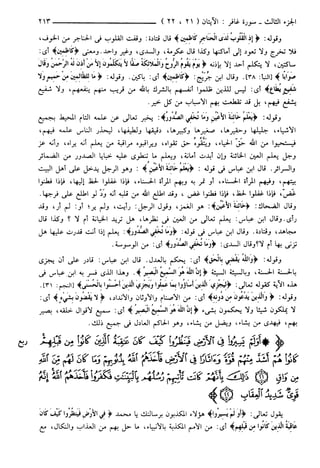 الجزء الثالث - سورة غافر : الآيتان ( ٢١ ، ٢٢ ) ٢١٣
وقوله: ﴿إِذِ الْقُلُوبُ لَدَى الْحَنَاجِرِ كَاظِمِينَ﴾ قال قتادة: وقفت القلوب في الحناجر من الخوف،
فلا تخرج ولا تعود إلى أماكنها وكذا قال عكرمة، والسدي، وغير واحد. ومعنى ﴿كَاظِمِينَ﴾ أي:
ساكتين، لا يتكلم أحد إلا بإذنه ﴿يَوْمَ يَقُومُ الرُّوحُ وَالْمَلَائِكَةُ صَفًّا لَا يَتَكَلَّمُونَ إِلَّا مَنْ أَذِنَ لَهُ الرَّحْمَنُ وَقَالَ
صَوَابًا﴾ [النبأ: ٣٨]. وقال ابن جُرَيْج: ﴿كَاظِمِينَ﴾ أي: باكين. وقوله: ﴿مَا لِلظَّالِمِينَ مِنْ حَمِيمٍ وَلَا
شَفِيعٍ يُطَاعُ﴾ أي: ليس للذين ظلموا أنفسهم بالشرك بالله من قريب منهم ينفعهم، ولا شفيع
يشفع فيهم، بل قد تقطعت بهم الأسباب من كل خير.
وقوله: ﴿يَعْلَمُ خَائِنَةَ الْأَعْيُنِ وَمَا تُخْفِي الصُّدُورُ﴾: يخبر تعالى عن علمه التام المحيط بجميع
الأشياء، جليلها وحقيرها، صغيرها وكبيرها، دقيقها ولطيفها، ليحذر الناس علمه فيهم،
فيستحيوا من الله حَقَّ الحياء، ويَتَّقُوه حق تقواه، ويراقبوه مراقبة من يعلم أنه يراه، وأنه عز
وجل يعلم العين الخائنة وإن أبدت أمانة، ويعلم ما تنطوي عليه خبايا الصدور من الضمائر
والسرائر. قال ابن عباس في قوله: ﴿يَعْلَمُ خَائِنَةَ الْأَعْيُنِ وَمَا تُخْفِي الصُّدُورُ﴾: هو الرجل يدخل على أهل البيت
بيتهم، وفيهم المرأة الحسناء، أو تمر به وبهم المرأة الحسناء، فإذا غفلوا لحظ إليها، وإذا فطنوا
غَضّ، فإذا غفلوا لحظ، فإذا فطنوا غض، وقد اطلع الله من قلبه أنه وَدّ لو اطلع على فرجها.
وقال الضحاك: ﴿خَائِنَةَ الْأَعْيُنِ﴾: هو الغمز، وقول الرجل: رأيت، ولم ير؛ أو: لم أر، وقد
رأى. وقال ابن عباس: يعلم تعالى من العين في نظرها، هل تريد الخيانة أم لا ؟ وكذا قال
مجاهد، وقتادة. وقال ابن عباس في قوله: ﴿وَمَا تُخْفِي الصُّدُورُ﴾: يعلم إذا أنت قدرت عليها هل
تزني بها أم لا؟ وقال السدي: ﴿وَمَا تُخْفِي الصُّدُورُ﴾ أي: من الوسوسة.
وقوله: ﴿وَاللَّهُ يَقْضِي بِالْحَقِّ﴾ أي: يحكم بالعدل. قال ابن عباس: قادر على أن يجزي
بالحسنة الحسنة، وبالسيئة السيئة ﴿إِنَّ اللَّهَ هُوَ السَّمِيعُ الْبَصِيرُ﴾. وهذا الذي فسر به ابن عباس في
هذه الآية كقوله تعالى: ﴿لِيَجْزِيَ الَّذِينَ أَسَاءُوا بِمَا عَمِلُوا وَيَجْزِيَ الَّذِينَ أَحْسَنُوا بِالْحُسْنَى﴾ [النجم: ٣١].
وقوله: ﴿وَالَّذِينَ يَدْعُونَ مِنْ دُونِهِ﴾ أي: من الأصنام والأوثان والأنداد، ﴿لَا يَقْضُونَ بِشَيْءٍ﴾ أي:
لا يملكون شيئا ولا يحكمون بشيء، ﴿إِنَّ اللَّهَ هُوَ السَّمِيعُ الْبَصِيرُ﴾ أي: سميع لأقوال خلقه، بصير
بهم، فيهدي من يشاء، ويضل من يشاء، وهو الحاكم العادل في جميع ذلك.
﴿أَوَلَمْ يَسِيرُوا فِي الْأَرْضِ فَيَنْظُرُوا كَيْفَ كَانَ عَاقِبَةُ الَّذِينَ كَانُوا مِنْ قَبْلِهِمْ
كَانُوا هُمْ أَشَدَّ مِنْهُمْ قُوَّةً وَآثَارًا فِي الْأَرْضِ فَأَخَذَهُمُ اللَّهُ بِذُنُوبِهِمْ وَمَا كَانَ لَهُمْ مِنَ اللَّهِ مِنْ
وَاقٍ ﴿٢١﴾ ذَلِكَ بِأَنَّهُمْ كَانَتْ تَأْتِيهِمْ رُسُلُهُمْ بِالْبَيِّنَاتِ فَكَفَرُوا فَأَخَذَهُمُ اللَّهُ إِنَّهُ
قَوِيٌّ شَدِيدُ الْعِقَابِ ﴿٢٢﴾
ربع
يقول تعالى: ﴿أَوَلَمْ يَسِيرُوا﴾ هؤلاء المكذبون برسالتك يا محمد ﴿فِي الْأَرْضِ فَيَنْظُرُوا كَيْفَ كَانَ
عَاقِبَةُ الَّذِينَ كَانُوا مِنْ قَبْلِهِمْ﴾ أي: من الأمم المكذبة بالأنبياء، ما حل بهم من العذاب والنكال، مع